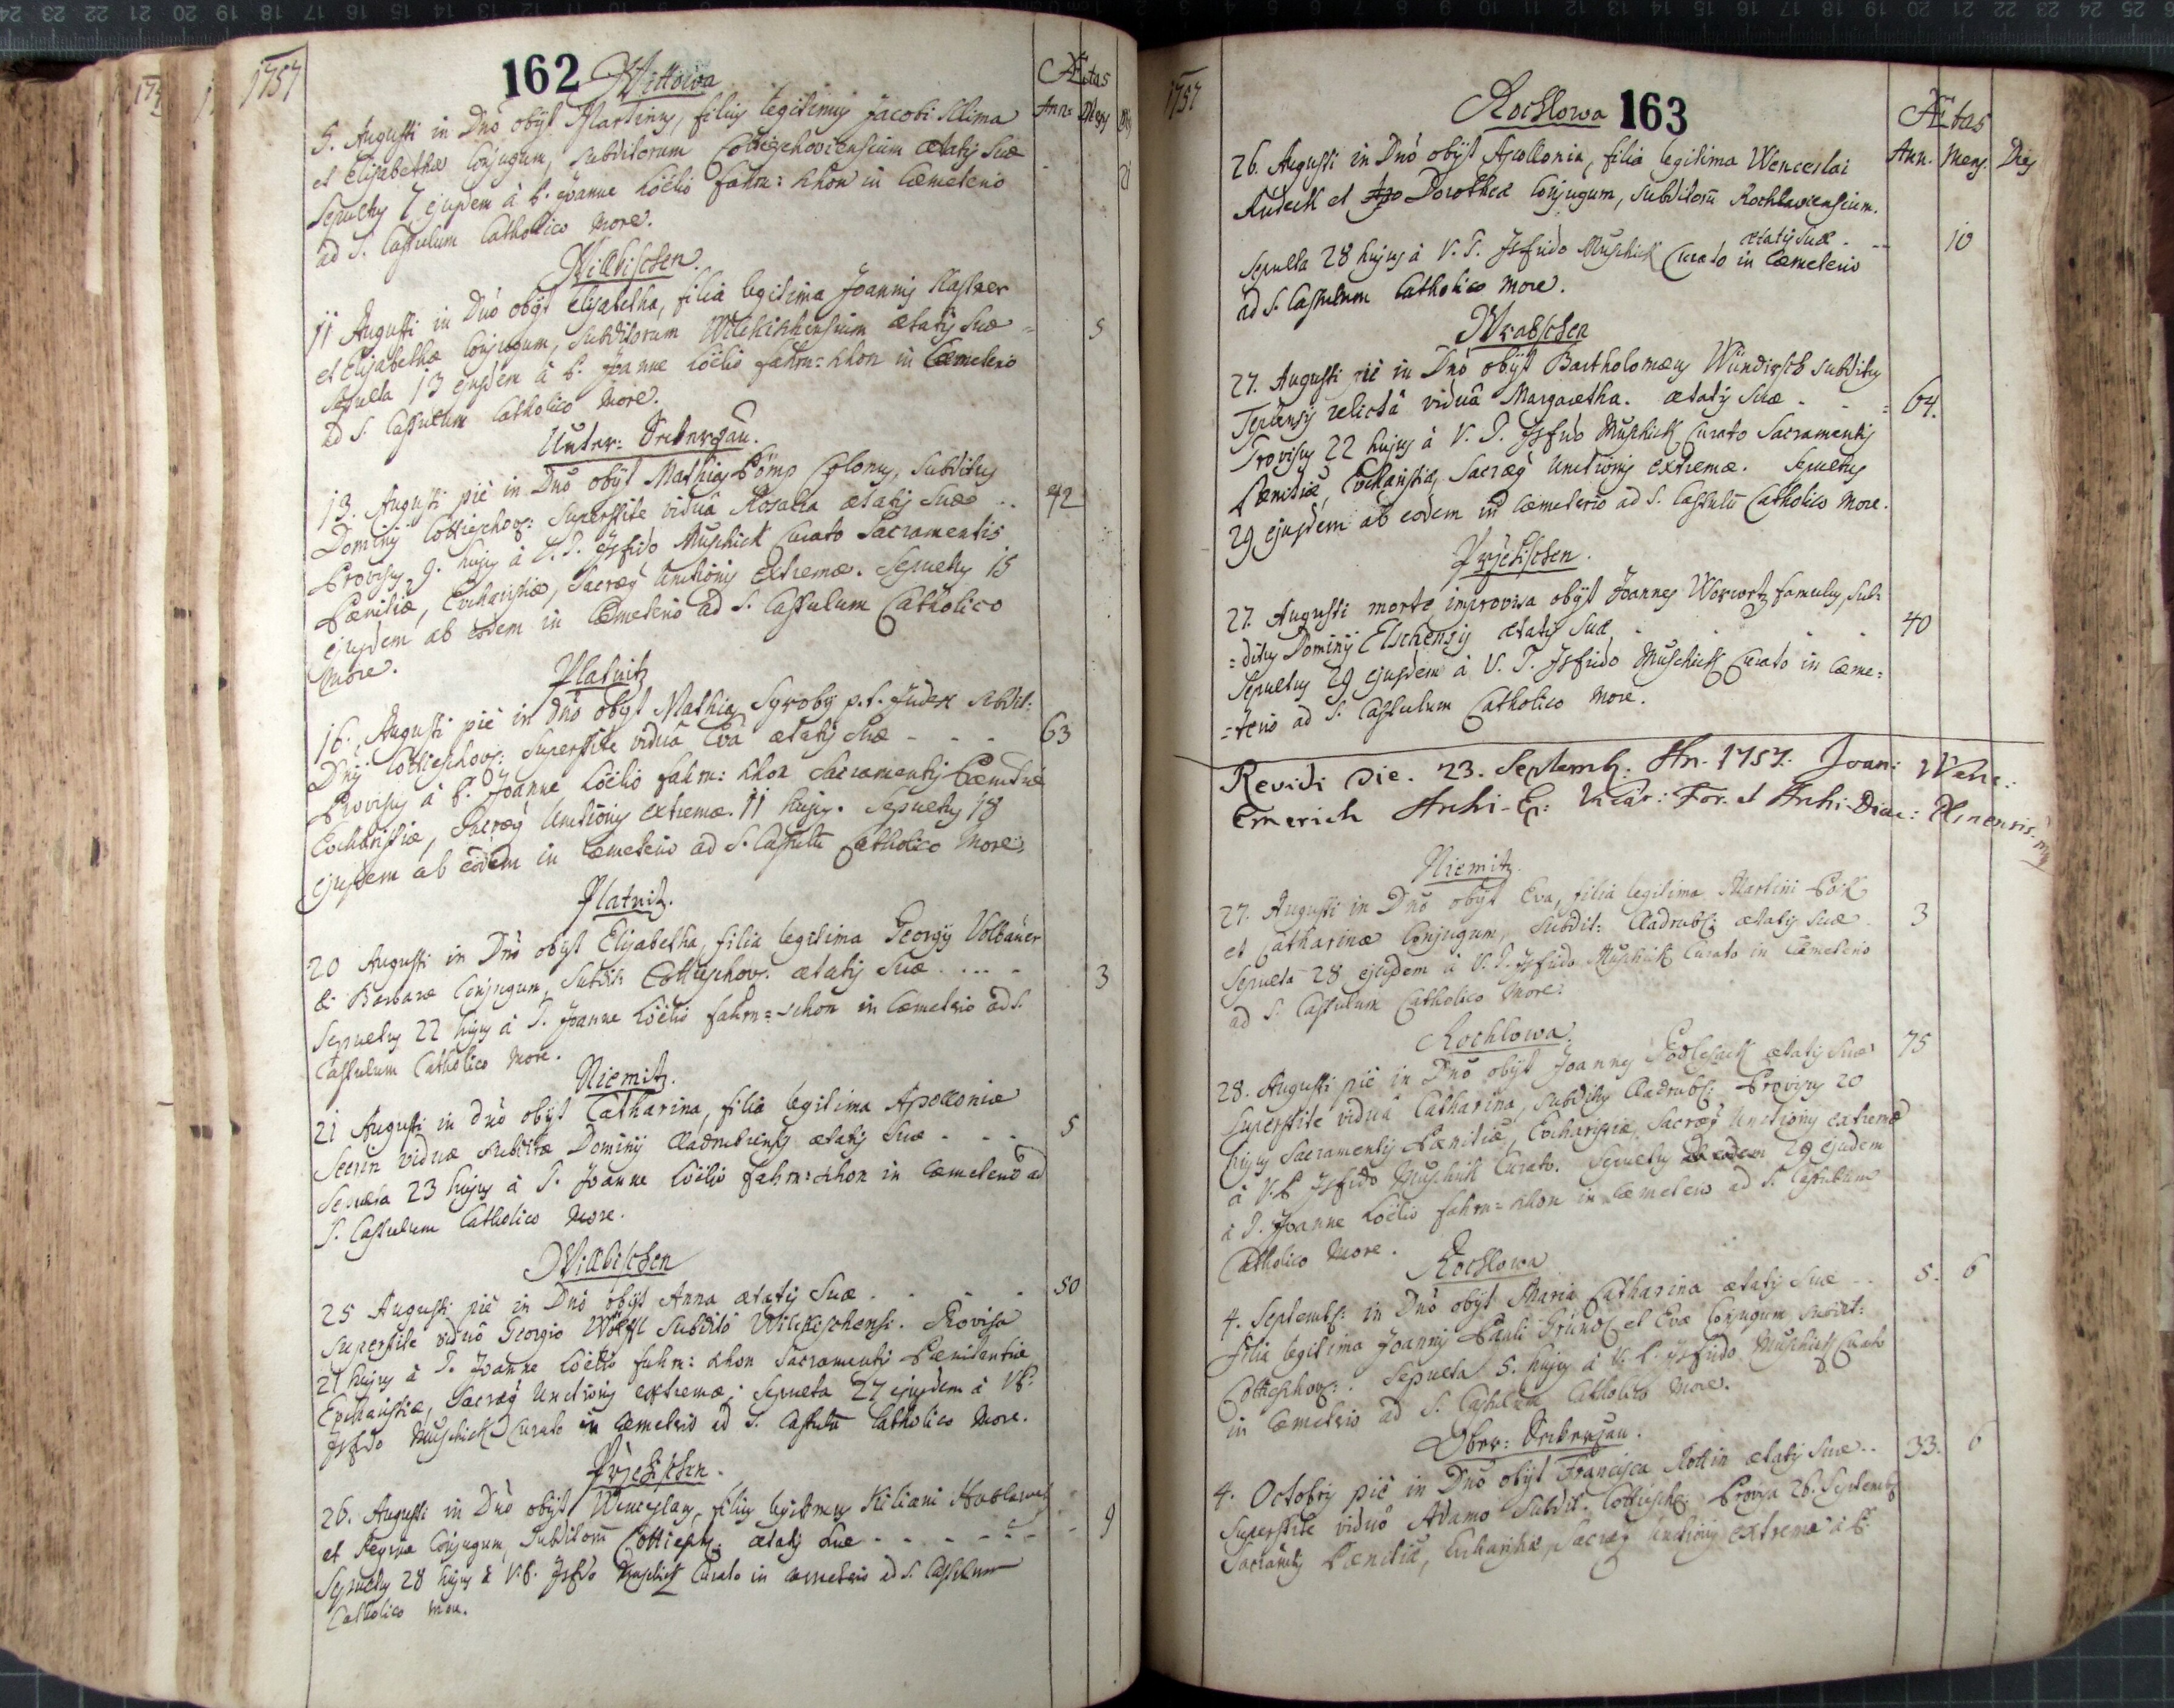 1757
162 Wittowa
Ætas
Ann: Mens Dies
5. Augusti in Dnō obijt Martinus, filius legitimus Jacobi Klima
et Elisabethæ Conjugum, subditorum Cottieschoviensium ætatis suæ - 21
Sepultus 7 ejusdem à P. Joanne Loëlio Fahn: khon in Cæmeterio
ad S. Cassulum Catholico More.
Willkischen.
11 Augusti in Dnō obijt Elisabetha, filia legitima Joannis Kastner
et Elisabethæ Conjugum, subditorum Wilkischensium ætatis suæ - 5
Sepulta 13 ejusdem à P. Joanne Loëlio Fahn: khon in Cæmeterio
ad S. Cassulum Catholico More.
Unter: Sekerzau.
13. Augusti piè in Dnō obijt Mathias Pömp Colonus, subditus
Dominij Cottieschov: Superstite viduâ Rosalia ætatis suæ .. 42
Provisus 9. hujus à V. P. Isfrido Muschick Curato Sacramentis
Pænitiæ, Eucharistiæ, Sacræq́ Unctionis extremæ. Sepultus 15
ejusdem ab eodem in Cæmeterio ad S. Cassulum Catholico
More.
Platnitz
16. Augusti piè in Dnō obijt Mathias Syroby p.t. Judex subdit:
Dnij Cottieschov: Superstite viduâ Eva ætatis suæ - - - 63
Provisus à P. Joanne Loëlio Fahn: khon Sacramentis Pænitiæ
Eucharistiæ, Sacræq́ Unctionis extremæ. 11 hujus. Sepultus 18
ejusdem ab eodem in Cæmeterio ad S. Cassulū Catholico More.
Platnitz.
20 Augusti in Dnō obijt Elisabetha, filia legitima Georgij Volbauer
& Barbaræ Conjugum, Subdit: Cottieschov: ætatis suæ .... - 3
Sepultus 22 hujus à P. Joanne Loëlio Fahn= schon in Cæmeterio ad S.
Cassulum Catholico More.
Niemitz.
21 Augusti in Dnō obijt Catharina, filia legitima Apolloniæ
viduæ subditæ Dominij Cladrubensis ætatis suæ - - - 5
Sepulta 23 hujus à P. Joanne Loëlio Fahn: khon in Cæmeterio ad
S. Cassulum Catholico More.
Willkischen
25 Augusti piè in Dnō obijt Anna ætatis suæ . - . - . 50
Superstite viduō Georgio subditō Wilkischensi. Provisa
21 hujus à P. Joanne Loëlio Fahn: khon Sacramentis Pænitentiæ
Eucharistiæ, Sacræq́ Unctionis extremæ; Sepulta 27 ejusdem à V.P.
Isfrido Muschick Curato in Cæmeterio ad S. Cassulū Catholico More.
Prjehischen.
26. Augusti in Dnō obijt Wenceslaus, filius legitimus Kiliani
et Reginæ Conjugum, subditorū Cottiesch: ætatis suæ - - - - - - 9
Sepultus 28 hujus à V.P. Isfrido Muschick Curato in Cæmeterio ad S. Cassulum
Catholico More.
1757
Rochlowa 163
Ætas
Ann. Mens. Dies
26. Augusti in Dnō obijt Apollonia, filia legitima Wenceslai
Rudeck et Dorotheæ Conjugum, subditorū Rochlaviensium.
ætatis suæ - -- 10
Sepulta 28 hujus à V. P. Isfrido Muschick Curato in Cæmeterio
ad S. Cassulum Catholico More.
Wrabschen
27. Augusti piè in Dnō obijt Bartholomæus Wundirsch subditus
Teplensis relictâ viduâ Margaretha. ætatis suæ - - - 64.
Provisus 22 hujus à V. P. Isfrido Muschick Curato Sacramentis
Pænitiæ, Eucharistiæ, Sacræq́ Unctionis extremæ. Sepultus
29 ejusdem ab eodem in Cæmeterio ad S. Cassulū Catholico More.
Prjehischen.
27. Augusti morte improvisa obijt Joannes famulus, sub=
=ditus Dominij Elschensis ætatis suæ . . . . . 40
Sepultus 29 ejusdem à V. P. Isfrido Muschick Curato in Cæme=
=terio ad S. Cassulum Catholico More.
Revidi Die. 23. Septemb: An. 1757. Joan: Wenc:
Emerich Archi-Ep: Vicar: For. et Archi-Diac: Plsnensis. mp
Niemitz.
27. Augusti in Dnō obijt Eva, filia legitima Martini Poik
et Catharinæ Conjugum, subdit: Cladrub: ætatis suæ . 3
Sepulta 28 ejusdem à V. P. Isfrido Muschick Curato in Cæmeterio
ad S. Cassulum Catholico More.
Rochlowa.
28. Augusti piè in Dnō obijt Joannes Podlesack ætatis suæ 75
Superstite viduâ Catharina, subditus Cladrub: Provisus 20
hujus Sacramentis Pænitiæ, Eucharistiæ, Sacræq́ Unctionis extremæ
à V.P. Isfrido Muschick Curato. Sepultus ab eodem 29 ejusdem
à P. Joanne Loëlio Fahn= khon in Cæmeterio ad S. Cassulum
Catholico More.
Rochlowa
4. Septemb: in Dnō obijt Maria Catharina ætatis suæ .. 5. 6
filia legitima Joannis Pauli Grund et Evæ Conjugum subdit:
Cottieschov: . Sepulta 5. hujus à V. P. Isfrido Muschick Curato
in Cæmeterio ad S. Cassulum Catholico More.
Ober: Sekerzau.
4. Octobris piè in Dnō obijt Francisca Kottin ætatis suæ .. 33. 6
Superstite viduō Adamo subdit. Cottiesch: Provisa 26. Septemb:
Sacramentis Pænitiæ, Eucharistiæ, Sacræq́ Unctionis extremæ à P.